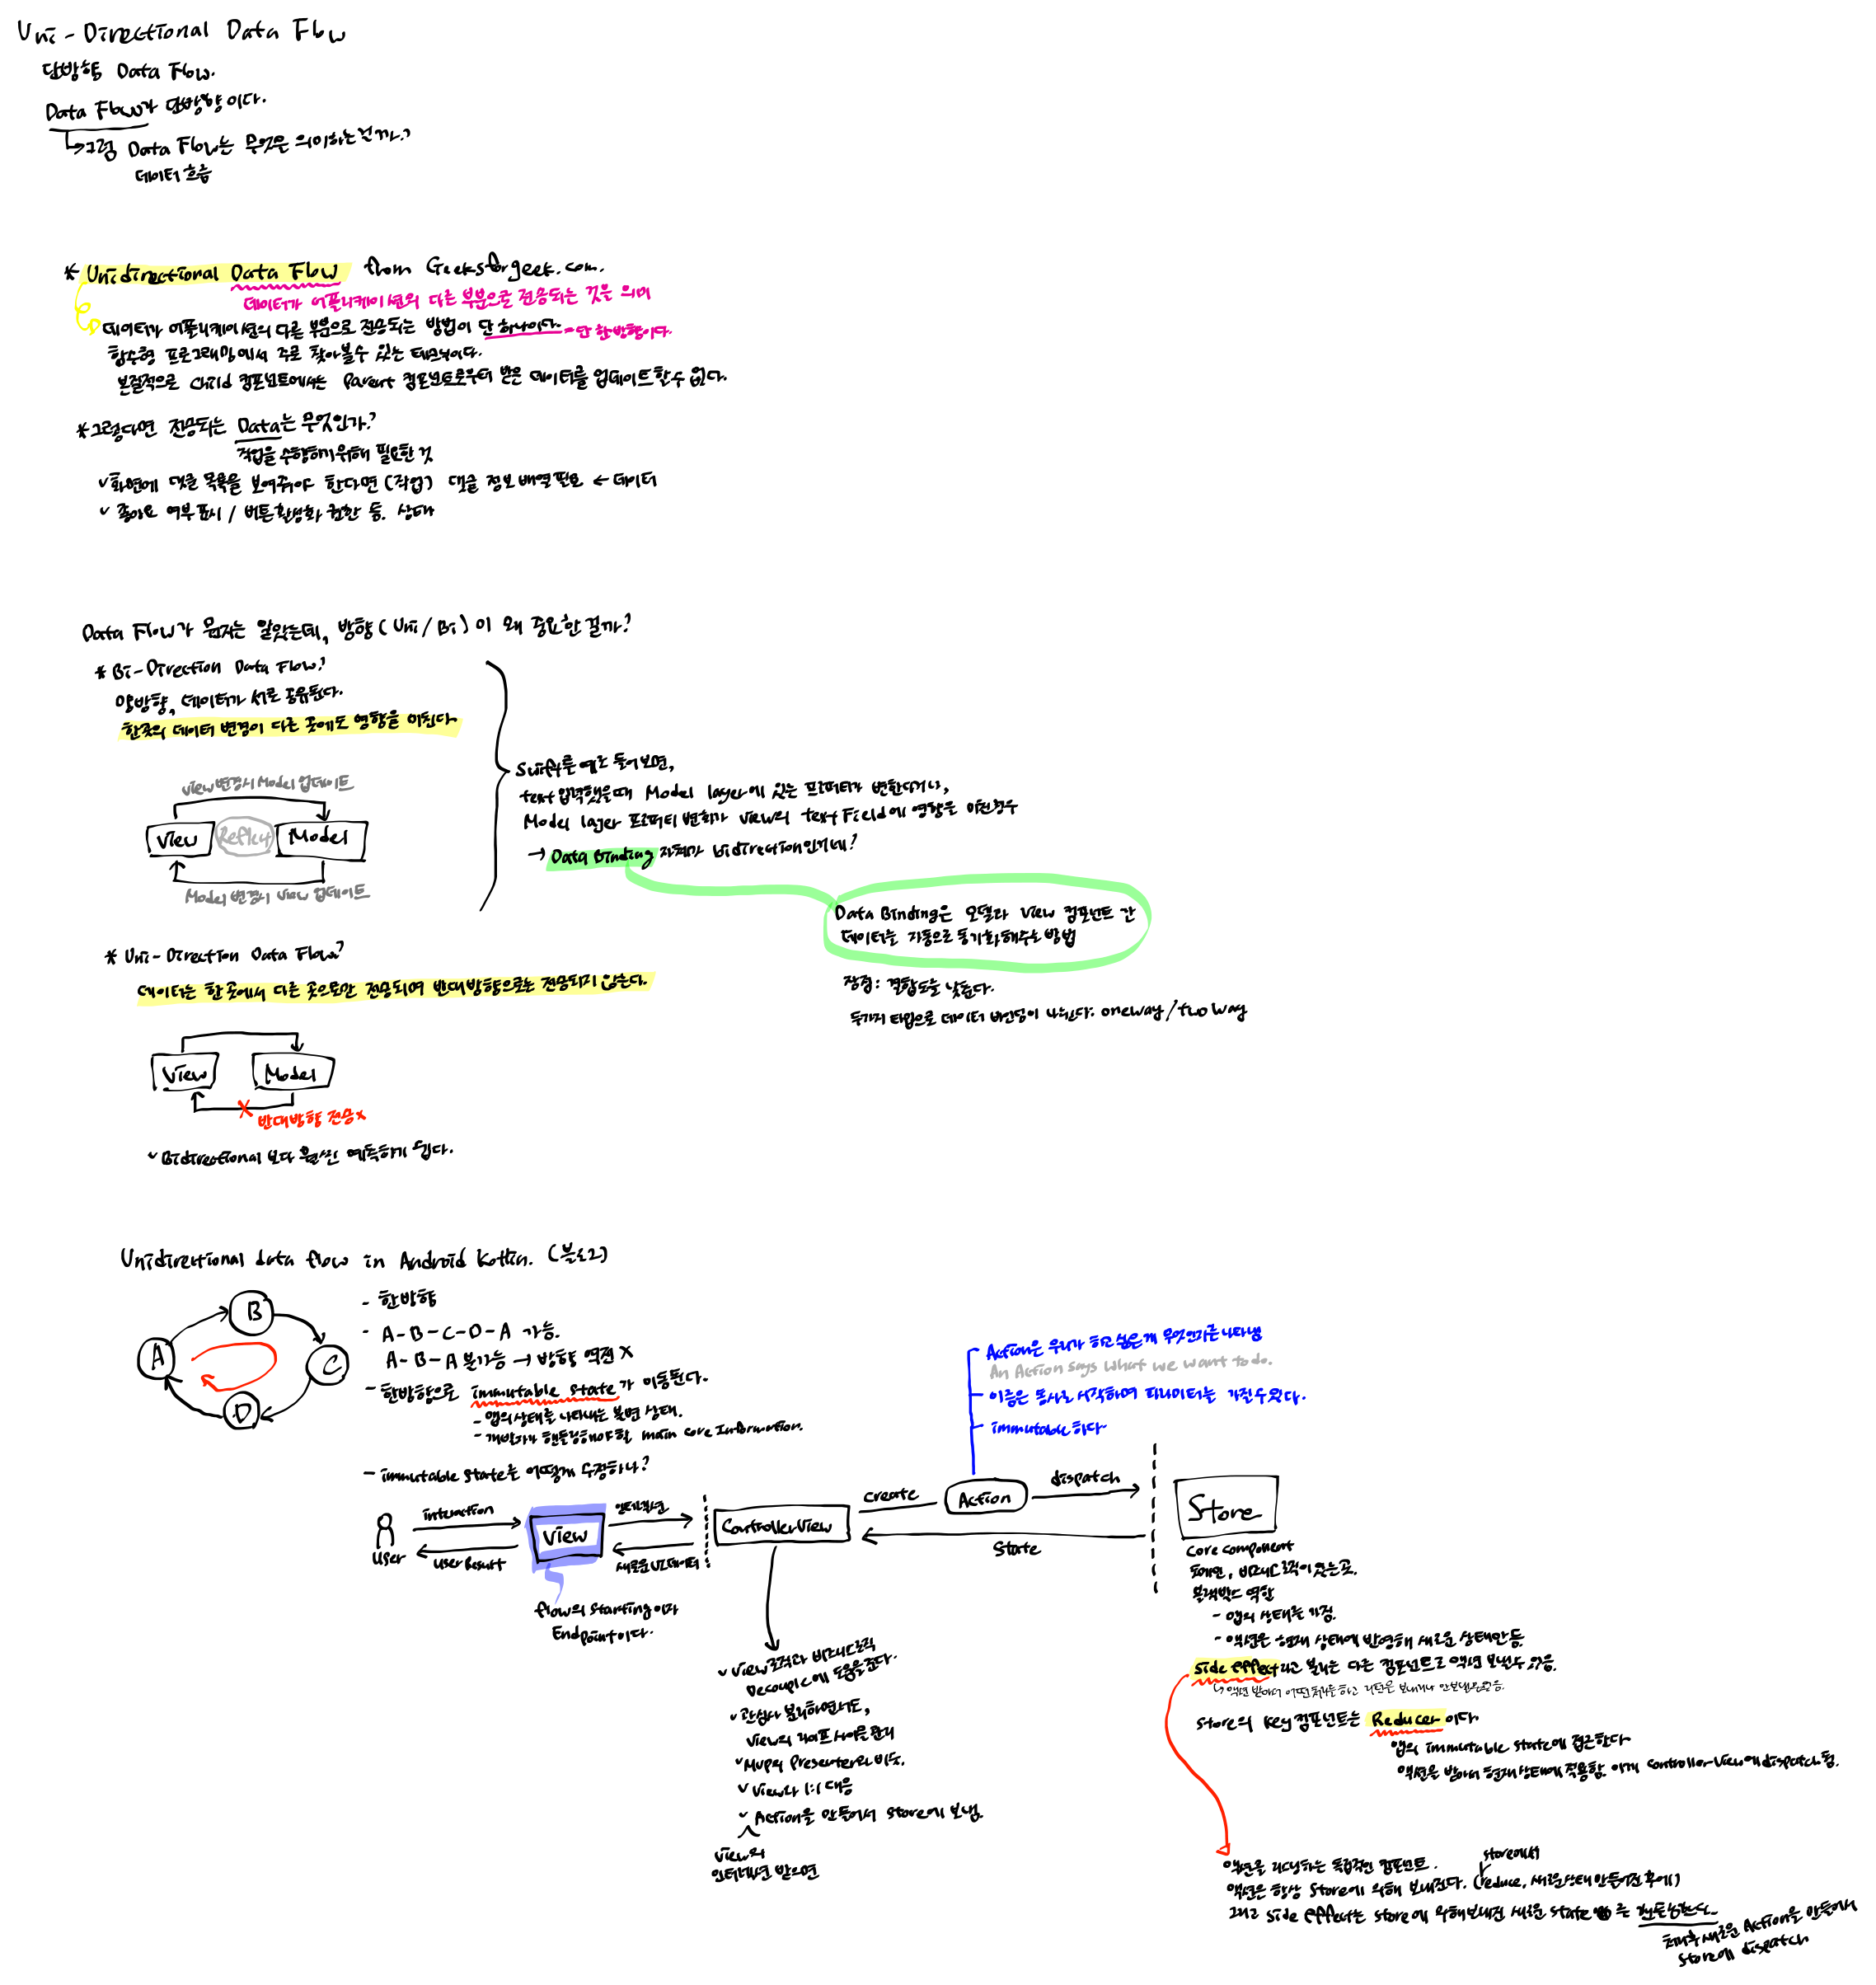 Uni-Directional Data Flow
단방향 Data Flow.
Data Flow가 단방향이다.
그럼 Data Flow는 무엇을 의미하는걸까?
데이터 흐름
* Unidirectional Data Flow from Geeksforgeek.com.
데이터가 어플리케이션의 다른 부분으로 전송되는 것을 의미
데이터가 어플리케이션의 다른 부분으로 전송되는 방법이 단 하나이다. = 단 한방향이다.
함수형 프로그래밍에서 주로 찾아볼수 있는 테크닉이다.
본질적으로 child 컴포넌트에서는 parent 컴포넌트로부터 받은 데이터를 업데이트할수 없다.
* 그렇다면 전송되는 Data는 무엇인가?
작업을 수행하기위해 필요한 것
✓ 화면에 댓글 목록을 보여줘야 한다면 (작업) 댓글 정보 배열 필요 ← 데이터
✓ 좋아요 여부 표시 / 버튼 활성화 권한 등. 상태
Data Flow가 뭔지는 알았는데, 방향 (Uni / Bi) 이 왜 중요한걸까?
* Bi-Direction Data Flow?
양방향, 데이터가 서로 공유된다.
한곳의 데이터 변경이 다른 곳에도 영향을 미친다.
view 변경시 Model 업데이트
View
Reflect
Model
Model 변경시 View 업데이트
Swift를 예로 들어보면,
text 입력했을때 Model layer에 있는 프로퍼티가 변한다거나,
Model layer 프로퍼티 변화가 view의 textField에 영향을 미친경우
→ Data Binding 자체가 bidirection인거네?
Data Binding은 모델과 View 컴포넌트 간
데이터를 자동으로 동기화해주는 방법
장점: 결합도를 낮춘다.
두가지 타입으로 데이터 바인딩이 나뉜다: oneway / two way
* Uni-Direction Data Flow?
데이터는 한 곳에서 다른 곳으로만 전송되며 반대방향으로는 전송되지 않는다.
View
Model
반대방향 전송 x
✓ Bidirectional 보다 훨씬 예측하기 쉽다.
Unidirectional data flow in Android Kotlin.
A
B
C
D
- 한방향
- A-B-C-D-A 가능.
A-B-A 불가능 → 방향 역전 X
- 한방향으로 immutable state가 이동된다.
- 앱의 상태를 나타내는 불변 상태.
- 개발자가 핸들링해야할 main core Information.
- immutable state를 어떻게 수정하나?
Action은 우리가 하고 싶은게 무엇인지를 나타냄
An Action says what we want to do.
이름은 동사로 시작하며 파라미터를 가질수있다.
immutable 하다
User
interaction
User Result
View
인터렉션
새로운 UI 데이터
flow의 starting이자
Endpoint이다.
ControllerView
Create
Action
dispatch
State
Store
core component
도메인, 비지니스 로직이 있는곳.
블랙박스 역할
- 앱의 상태를 가짐.
- 액션을 현재 상태에 반영해 새로운 상태만듦.
side effect라고 불리는 다른 컴포넌트로 액션 보낼수 있음.
↳ 액션 받아서 어떤 처리를 하고 리턴을 보내거나 안보낼수있음.
store의 key 컴포넌트는 Reducer이다
앱의 immutable state에 접근한다
액션을 받아서 현재상태에 적용함. 이게 controller-view에 dispatch됨.
✓ View 로직과 비지니스 로직
Decouple에 도움을 준다.
✓ 관심사 분리하면서도,
View의 라이프 사이클 관리
✓ MVP의 Presenter와 비슷.
✓ View와 1:1 대응
✓ Action을 만들어서 store에 보냄.
view의
인터렉션 받으면
액션을 리스닝하는 독립적인 컴포넌트.
store에서
액션은 항상 Store에 의해 보내진다. (reduce, 새로운상태 만들어진 후에)
그리고 side effect는 store에 의해보내진 새로운 state를 핸들링한다.
처리후 새로운 Action을 만들어서
store에 dispatch